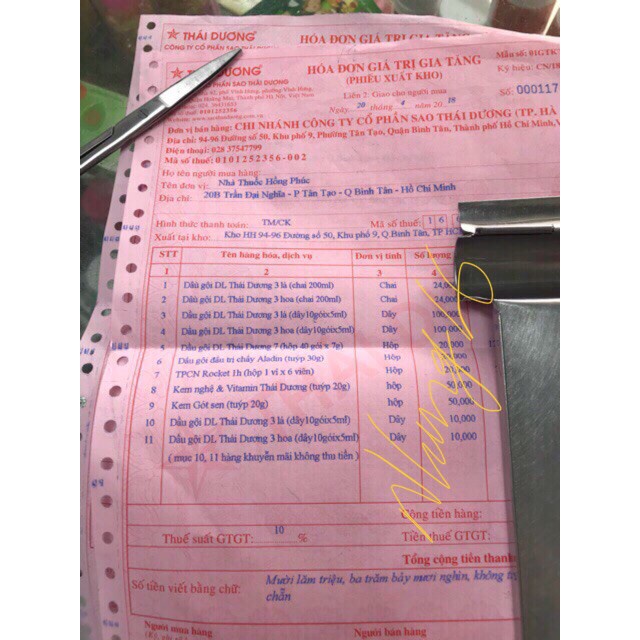 THÁI DƯƠNG
CÔNG TY CỔ PHẦN SAO THÁI DƯƠNG
HÓA ĐƠN GIÁ TRỊ GIA TĂNG
DƯƠNG
PHẦN SAO THÁI DƯƠNG
HÓA ĐƠN GIÁ TRỊ GIA TĂNG
(PHIẾU XUẤT KHO)
Liên 2: Giao cho người mua
Ngày 20 tháng 4 năm 20 18
Mẫu số: 01GTK
Ký hiệu:
Số: 000117
Đơn vị bán hàng: CHI NHÁNH CÔNG TY CỔ PHẦN SAO THÁI DƯƠNG (TP. HÀ
Địa chỉ: 94-96 Đường số 50, Khu phố 9, Phường Tân Tạo, Quận Bình Tân, Thành phố Hồ Chí Minh, V
Điện thoại: 028 37547799
Mã số thuế: 0101252356-002
Họ tên người mua hàng:
Tên đơn vị: Nhà Thuốc Hồng Phúc
Địa chỉ: 20B Trần Đại Nghĩa - P Tân Tạo - Q Bình Tân - Hồ Chí Minh
Hình thức thanh toán: TM/CK Mã số thuế: 1 6
Xuất tại kho: Kho HH 94-96 Đường số 50, Khu phố 9, Q.Bình Tân, TP HC
STT Tên hàng hóa, dịch vụ Đơn vị tính Số lượng
1 2 3 4
1 Dầu gội DL Thái Dương 3 lá (chai 200ml) Chai 24,000
2 Dầu gội DL Thái Dương 3 hoa (chai 200ml) Chai 24,000
3 Dầu gội DL Thái Dương 3 lá (dây10góix5ml) Dây 100,000
4 Dầu gội DL Thái Dương 3 hoa (dây10góix5ml) Dây 100,000
5 Dầu gội DL Thái Dương 7 (hộp 40 gói x 7g) Hộp 20,000
6 Dầu gội đầu trị chấy Aladin (tuýp 30g) Hộp
7 TPCN Rocket 1h (hộp 1 vỉ x 6 viên) Hộp
8 Kem nghệ & Vitamin Thái Dương (tuýp 20g) hộp 50,000
9 Kem Gót sen (tuýp 20g) hộp 50,000
10 Dầu gội DL Thái Dương 3 lá (dây10góix5ml) Dây 10,000
11 Dầu gội DL Thái Dương 3 hoa (dây10góix5ml) Dây 10,000
( mục 10, 11 hàng khuyến mãi không thu tiền )
Cộng tiền hàng:
Thuế suất GTGT: 10 % Tiền thuế GTGT:
Tổng cộng tiền thanh
Số tiền viết bằng chữ: Mười lăm triệu, ba trăm bảy mươi nghìn, không
chẵn
Người mua hàng Người bán hàng